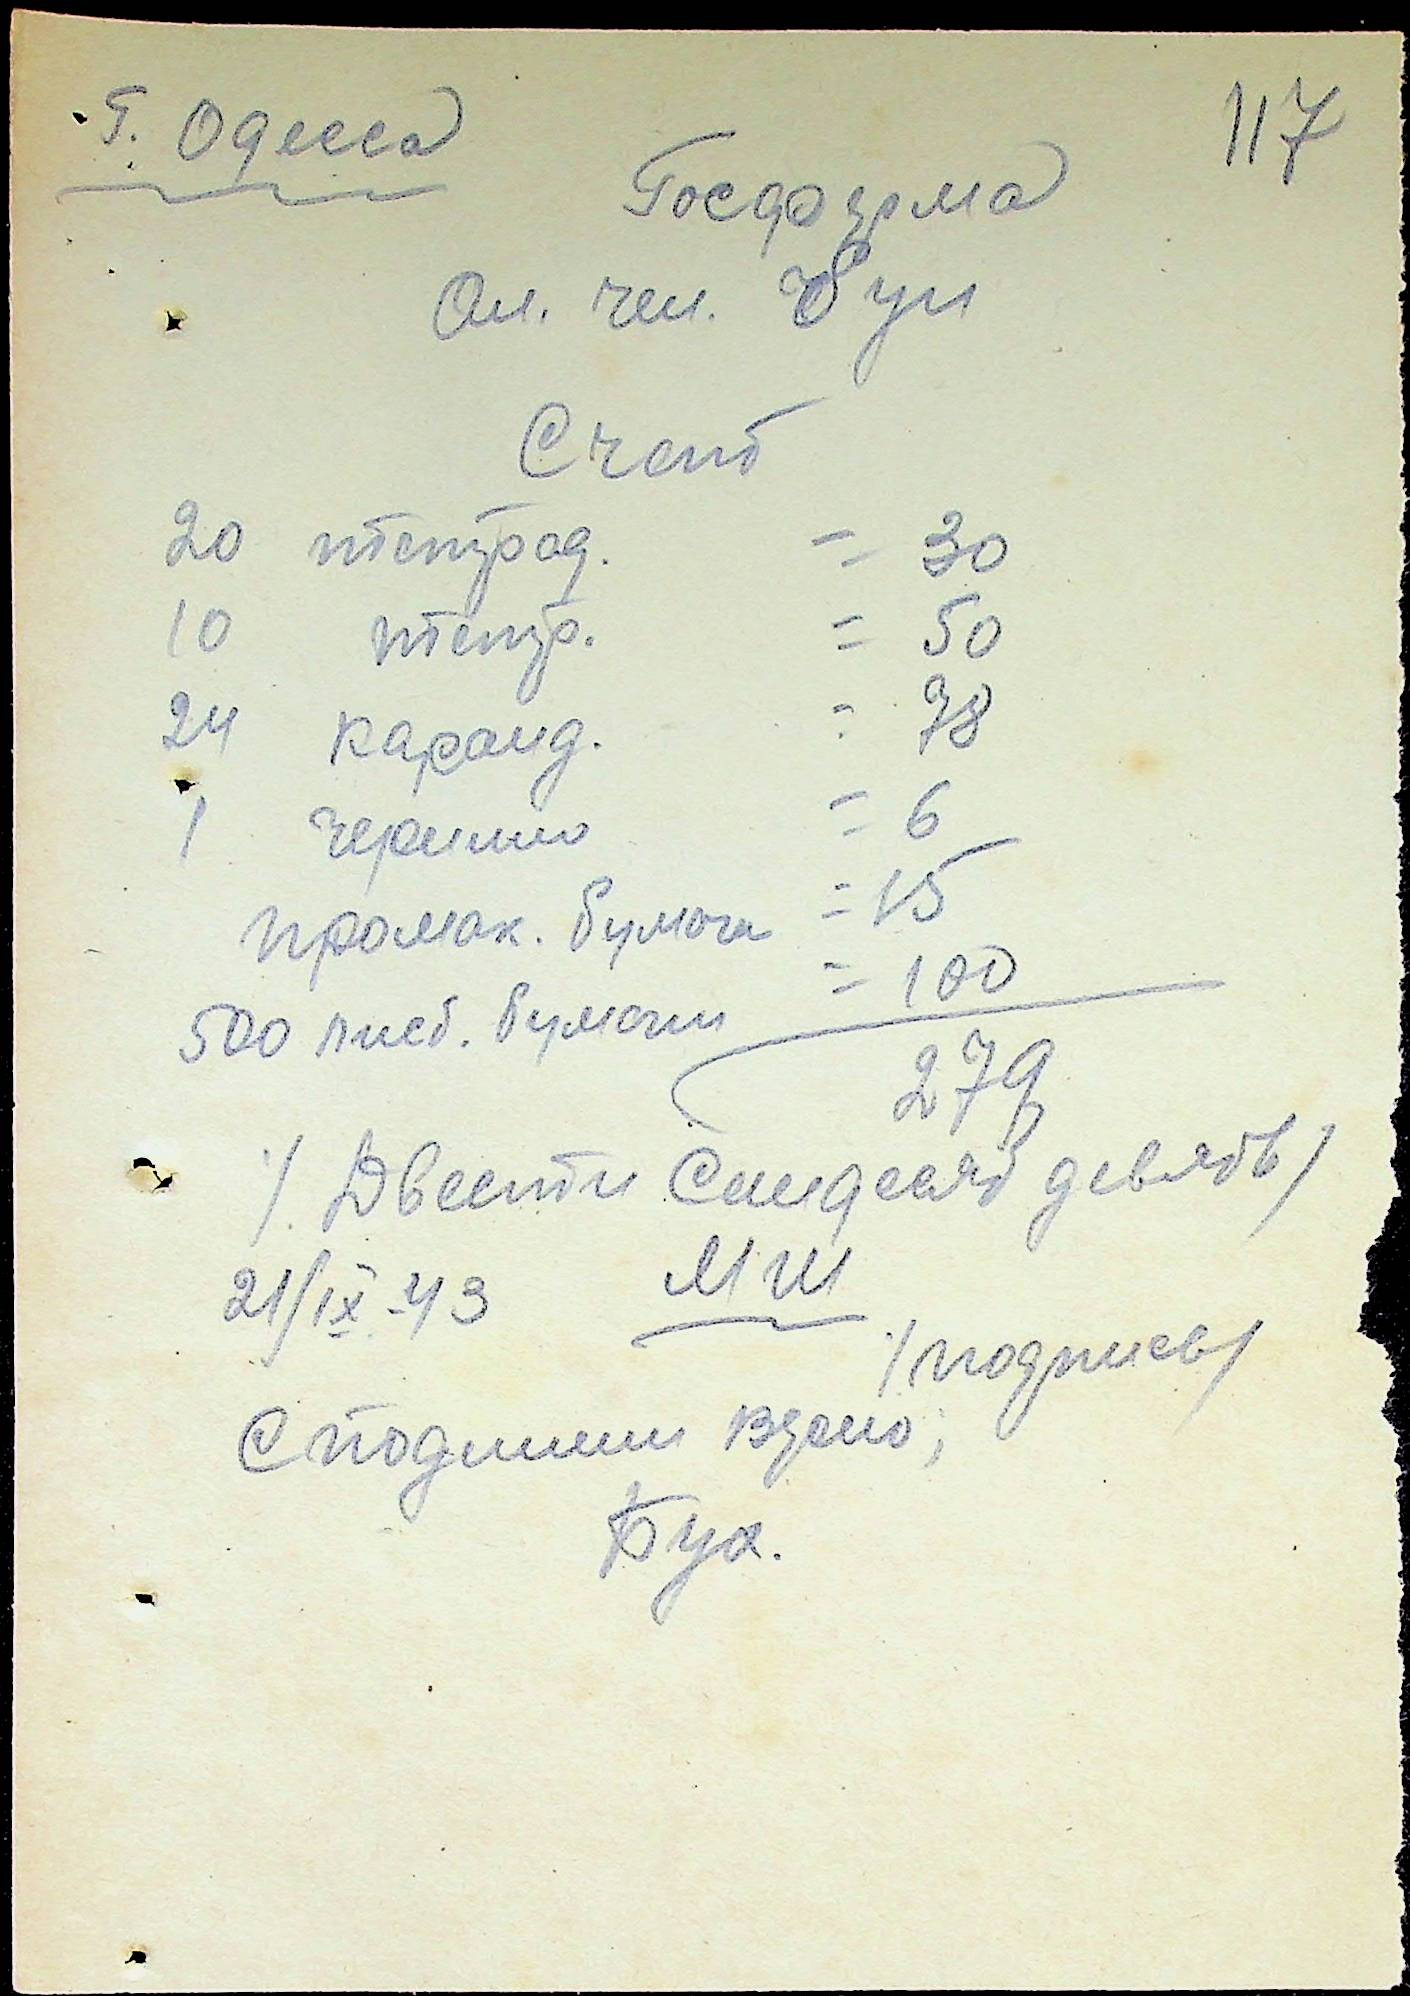 г. Одесса
117
Госферма
Счет
20 тетрад. = 30
10 тетр. = 50
24 каранд. = 78
1 чернило = 6
промок. бумага = 15
500 лист. бумаги = 100
279
/. Двести Семдесят девять/
21/IX-43 МШ
/подпись/
С подлинным верно;
Бух.